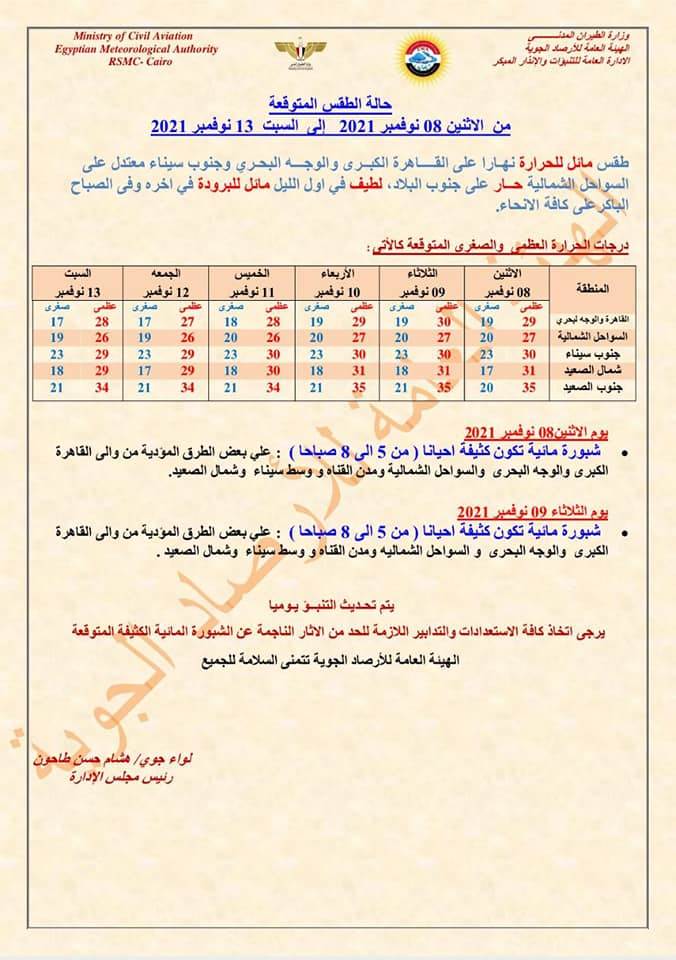 Ministry of Civil Aviation
Egyptian Meteorological Authority
RSMC- Cairo
وزارة الطيران المدنـــي
الهيئة العامة للأرصاد الجوية
الادارة العامة للتنبؤات والإنذار المبكر
حالة الطقس المتوقعة
من الاثنين 08 نوفمبر 2021 إلى السبت 13 نوفمبر 2021
طقس مائل للحرارة نهارا على القــاهرة الكبرى والوجــه البحــري وجنوب سيناء معتدل على
السواحل الشمالية حــار على جنوب البلاد، لطيف في اول الليل مائل للبرودة في اخره وفى الصباح
الباكر على كافة الانحاء.
درجات الحرارة العظمى والصغرى المتوقعة كالأتي:
المنطقة الاثنين 08 نوفمبر الثلاثاء 09 نوفمبر الأربعاء 10 نوفمبر الخميس 11 نوفمبر الجمعه 12 نوفمبر السبت 13 نوفمبر
عظمى صغرى عظمى صغرى عظمى صغرى عظمى صغرى عظمى صغرى عظمى صغرى
القاهرة والوجه لبحري 29 19 30 19 29 19 28 18 27 17 28 17
السواحل الشمالية 27 20 27 20 27 20 26 20 26 19 26 19
جنوب سيناء 30 23 30 23 30 23 30 23 29 23 29 23
شمال الصعيد 31 17 31 18 31 18 30 18 29 17 29 18
جنوب الصعيد 35 20 35 21 35 21 34 21 34 21 34 21
يوم الاثنين08 نوفمبر 2021
• شبورة مائية تكون كثيفة احيانا ( من 5 الى 8 صباحا ) : علي بعض الطرق المؤدية من والى القاهرة
الكبرى والوجه البحرى والسواحل الشمالية ومدن القناه و وسط سيناء وشمال الصعيد.
يوم الثلاثاء 09 نوفمبر 2021
• شبورة مائية تكون كثيفة احيانا ( من 5 الى 8 صباحا ) : علي بعض الطرق المؤدية من والى القاهرة
الكبرى والوجه البحرى و السواحل الشماليه ومدن القناه و وسط سيناء وشمال الصعيد .
يتم تحـديث التنبــؤ يـوميا
يرجى اتخاذ كافة الاستعدادات والتدابير اللازمة للحد من الاثار الناجمة عن الشبورة المائية الكثيفة المتوقعة
الهيئة العامة للأرصاد الجوية تتمنى السلامة للجميع
لواء جوي/ هشام حسن طاحون
رئيس مجلس الإدارة
الهيئة العامة للأرصاد الجوية